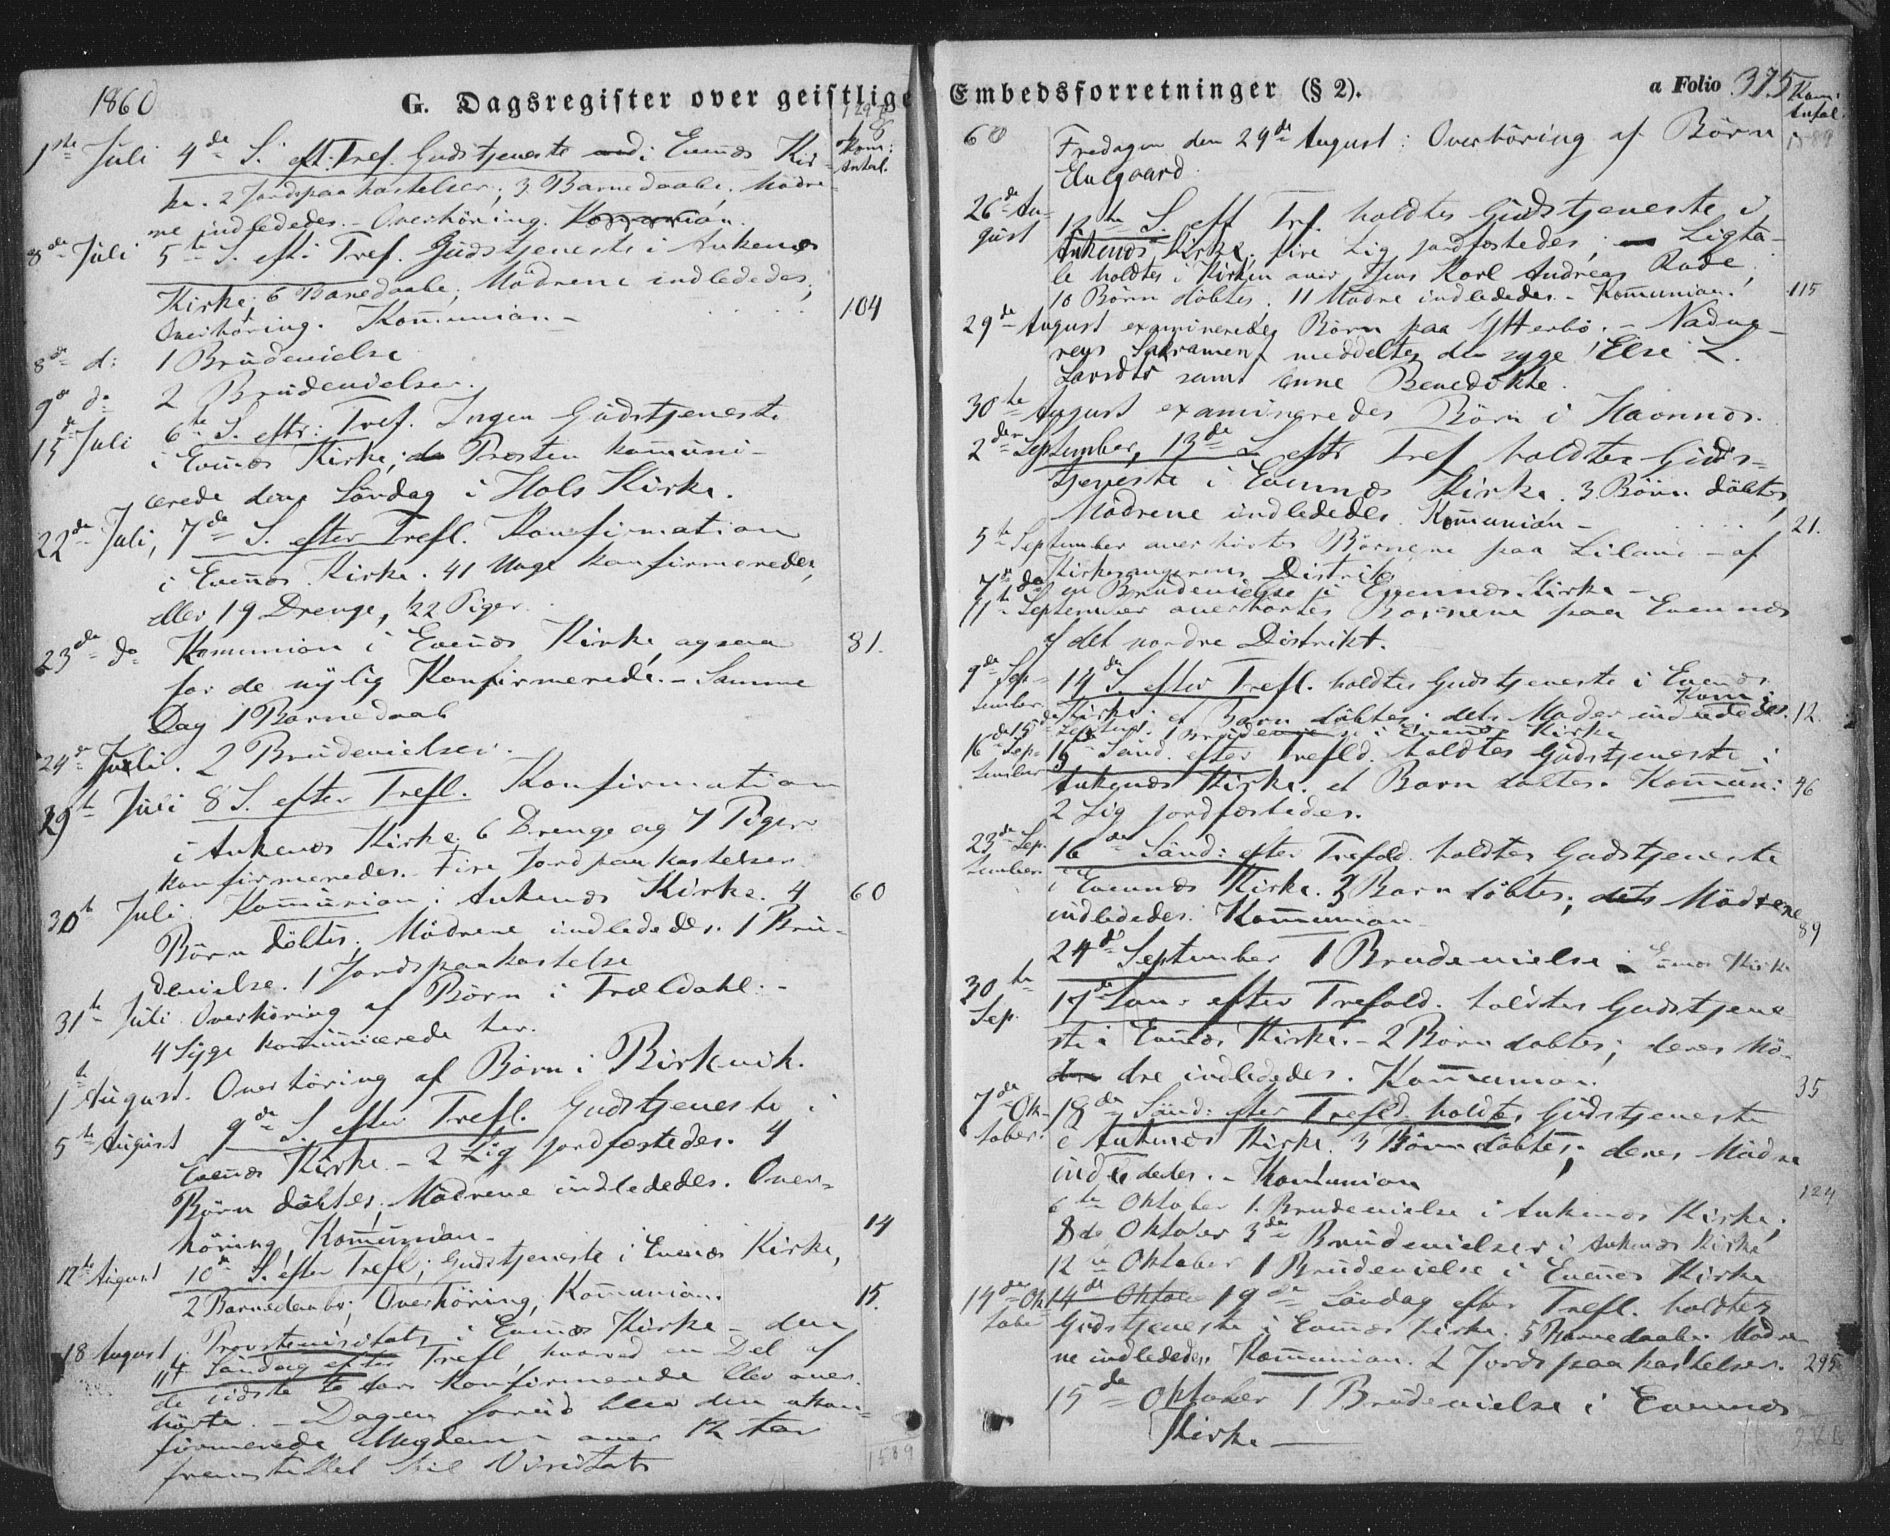 1860
G. Dagsregister over geistlige
Kom:
Antal.
1ste Juli 4de S. eft. Tref. Gudstjeneste i Evenæs Kir-
ke. 2 Jordspaakastelser; 3 Barnedaabe. Mødre-
ne indlededes. - Overhøring. Kommunion.
8de Juli 5te S. eft. Tref. Gudstjeneste i Ankenæs
Kirke; 6 Barnedaabe; Mødrene indlededes;
Overhøring. Kommunion. - 104
8de d: 1 Brudevielse
9de do 2 Brudevielser.
15de Juli 6te S. eftr: Tref. Ingen Gudstjeneste
i Evenæs Kirke; Provsten kommuni-
cerede den Søndag i Hols Kirke.
22de Juli, 7de S. efter Trefl. Konfirmation
i Evenæs Kirke. 41 Unge konfirmeredes,
eller 19 Drenge, 22 Piger.
23de do Kommunion i Evenæs Kirke ogsaa 81.
for de nylig Konfirmerede. - Samme
Dag 1 Barnedaab
24de Juli. 2 Brudevielser.
29de Juli 8 S. efter Trefl. Konfirmation
i Ankenæs Kirke. 6 Drenge og 7 Piger
konfirmeredes. Fire Jordpaakastelser
30te Juli Kommunion i Ankenæs Kirke. 4 60
Børn døbtes; Mødrene indlededes. 1 Bru-
devielse. 1 Jordspaakastelse
31te Juli Overhøring af Børn i Trældahl. -
4 Syge kommunicerede her.
1te August. Overhøring af Børn i Birkvik.
5te August 9de S. efter Trefl. Gudstjeneste i
Evenæs Kirke - 2 Lig jordfæstedes. 4
Børn døbtes; Mødrene indlededes. Over-
høring, Kommunion - 14
12te August 10de S. efter Trefl; Gudstjeneste i Evenæs Kirke,
2 Barnedaabe; Overhøring, Kommunion. 15.
18 August Provstevisitats i Evenæs Kirke - den
11te Søndag efter Trefl, hvorved en Del af
de sidste to Aars konfirmerede blev over-
hørte. - Dagen forud blev den ukon-
firmerede Ungdom over 12 Aar
fremstillet til Visitats
1589
Embedsforretninger (§ 2).
a Folio 375
Kom:
Antal.
1589
60 Fredagen den 24de August: Overhøring af Børn
Elvegaard.
26de Au-
gust 12te S. eft Tref. holdtes Gudstjeneste i
Ankenæs Kirke, fire Lig jordfæstedes; Ligta-
le holdtes i Kirken over Jens Karl Andreas Rode;
10 Børn døbtes. 11 Mødre indlededes. - Kommunion. 115
29de August examineredes Børn paa Ytterbö. - Nadve-
rens Sakrament meddeltes den syge Else L.
Larsdtr samt Anne Benedikte.
30te August examineredes Børn i Havnnæs.
2den September, 13de S. eftr Tref holdtes Guds-
tjeneste i Evennæs Kirke. 3 Børn døbtes,
Mødrene indlededes. Kommunion - 21.
5te September overhørtes Børnene paa Liland - af
Kirkesangerens Distrikt
7de do en Brudevielse i Evennæs Kirke -
11te September overhørtes Børnene paa Evennæs
af det nordre Distrikt.
9de Sep-
tember 14de S. efter Trefl. holdtes Gudstjeneste i Evenæs
Kirke; et Barn døbtes; dets Moder indlededes. Kom: 12.
15de Sept. 1 Brudevielse i Evenæs Kirke
16de Sep-
tember 15de Sønd. efter Trefld. holdtes Gudstjeneste i
Ankenæs Kirke. et Barn døbtes. Kommun: 46
2 Lig jordfæstedes.
23de Sep-
tember. 16de Sønd: efter Trefold. holdtes Gudstjeneste
i Evennæs Kirke. 3 Børn døbtes; Mødrene
indlededes. Kommunion 89
24de September 1 Brudevielse i Evenæs Kirke
30te
Sep. 17de Søn. efter Trefold. holdtes Gudstjene
ste i Evenæs Kirke. - 2 Børn døbtes; deres Mø-
dre indlededes. Kommunion. 35
7de Ok-
tober: 18de Sønd: efter Trefld. holdtes Gudstjeneste
i Ankenæs Kirke. 3 Børn døbtes; deres Mødre
indlededes. - Kommunion 124
6te Oktober 1. Brudevielse i Ankenæs Kirke;
8de Oktober 3de Brudevielser i Ankenæs Kirke
12te Oktober 1 Brudevielse i Evenæs Kirke
14de Ok-
tober 14de Oktober 19de Søndag efter Trefl. holdtes
Gudstjeneste i Evenæs Kirke. 5 Barnedaabe. Mødre
ne indlededes. Kommunion. 2 Jordspaakastelser. 295
15de Oktober 1 Brudevielse i Evennæs
Kirke -